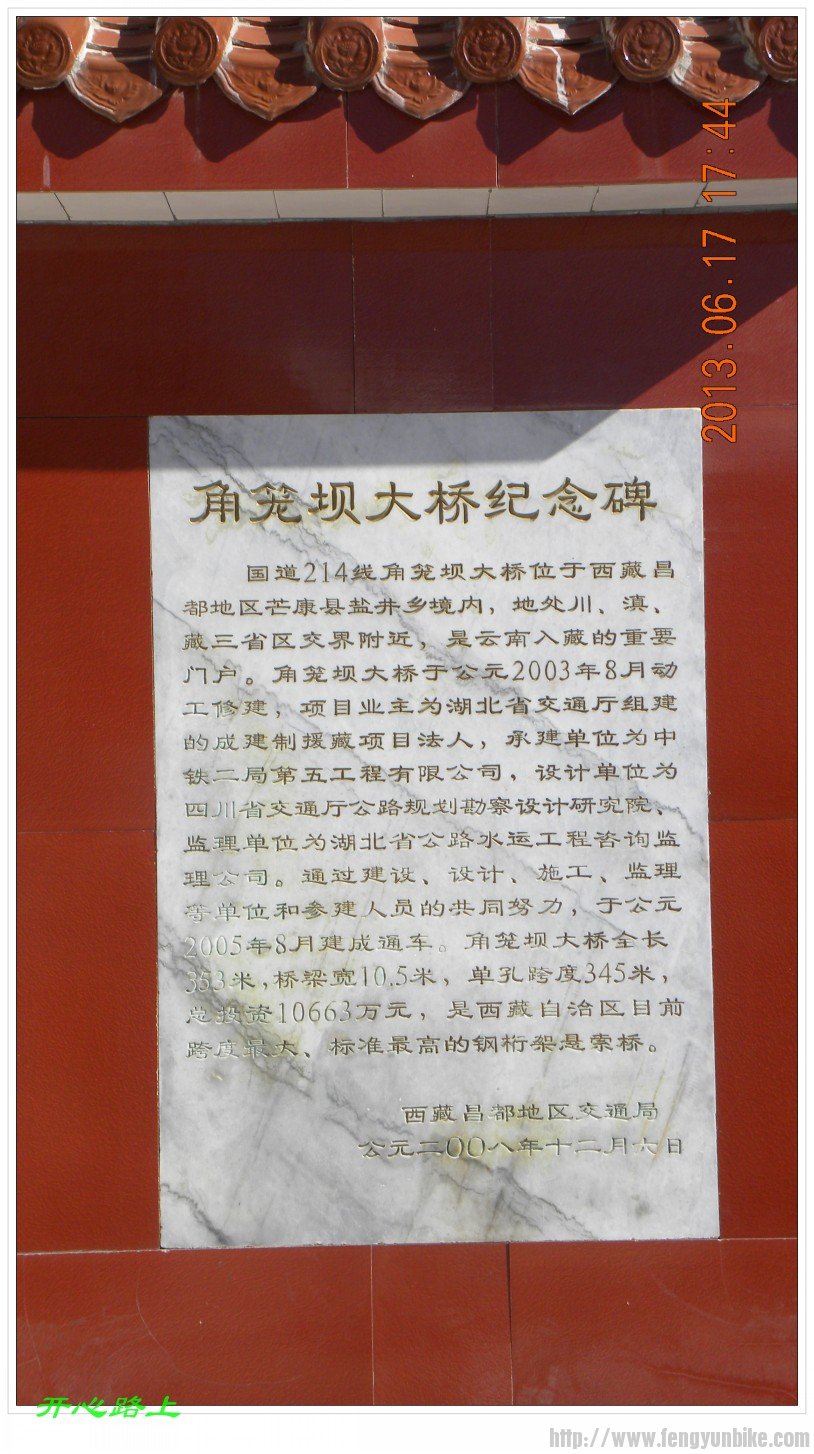 2013.06.17 17:44
角笼坝大桥纪念碑
国道214线角笼坝大桥位于西藏昌
都地区芒康县盐井乡境内，地处川、滇、
藏三省区交界附近，是云南入藏的重要
门户。角笼坝大桥于公元2003年8月动
工修建，项目业主为湖北省交通厅组建
的成建制援藏项目法人，承建单位为中
铁二局第五工程有限公司，设计单位为
四川省交通厅公路规划勘察设计研究院、
监理单位为湖北省公路水运工程咨询监
理公司。通过建设、设计、施工、监理
等单位和参建人员的共同努力，于公元
2005年8月建成通车。角笼坝大桥全长
353米，桥梁宽10.5米，单孔跨度345米，
总投资10663万元，是西藏自治区目前
跨度最大、标准最高的钢桁架悬索桥。
西藏昌都地区交通局
公元二〇〇八年十二月六日
开心路上
http://www.fengyunbike.com